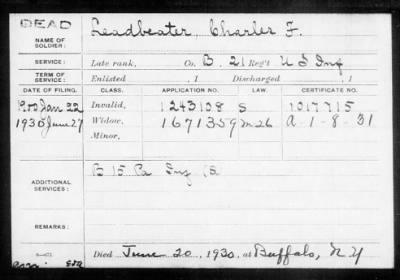 DEAD
NAME OF SOLDIER: Leadbeater, Charles F.
SERVICE: Late rank, Co. B, 21 Reg't U S Inf
TERM OF SERVICE: Enlisted , 1 Discharged , 1
DATE OF FILING. CLASS. APPLICATION NO. LAW. CERTIFICATE NO.
1900 Jan 22 Invalid, 1243108 S 1017715
1930 June 27 Widow, 1671359 m-26 A-1-8-31
Minor,
ADDITIONAL SERVICES: B 15 Pa Inf
REMARKS:
Died June 20, 1930, at Buffalo, N Y